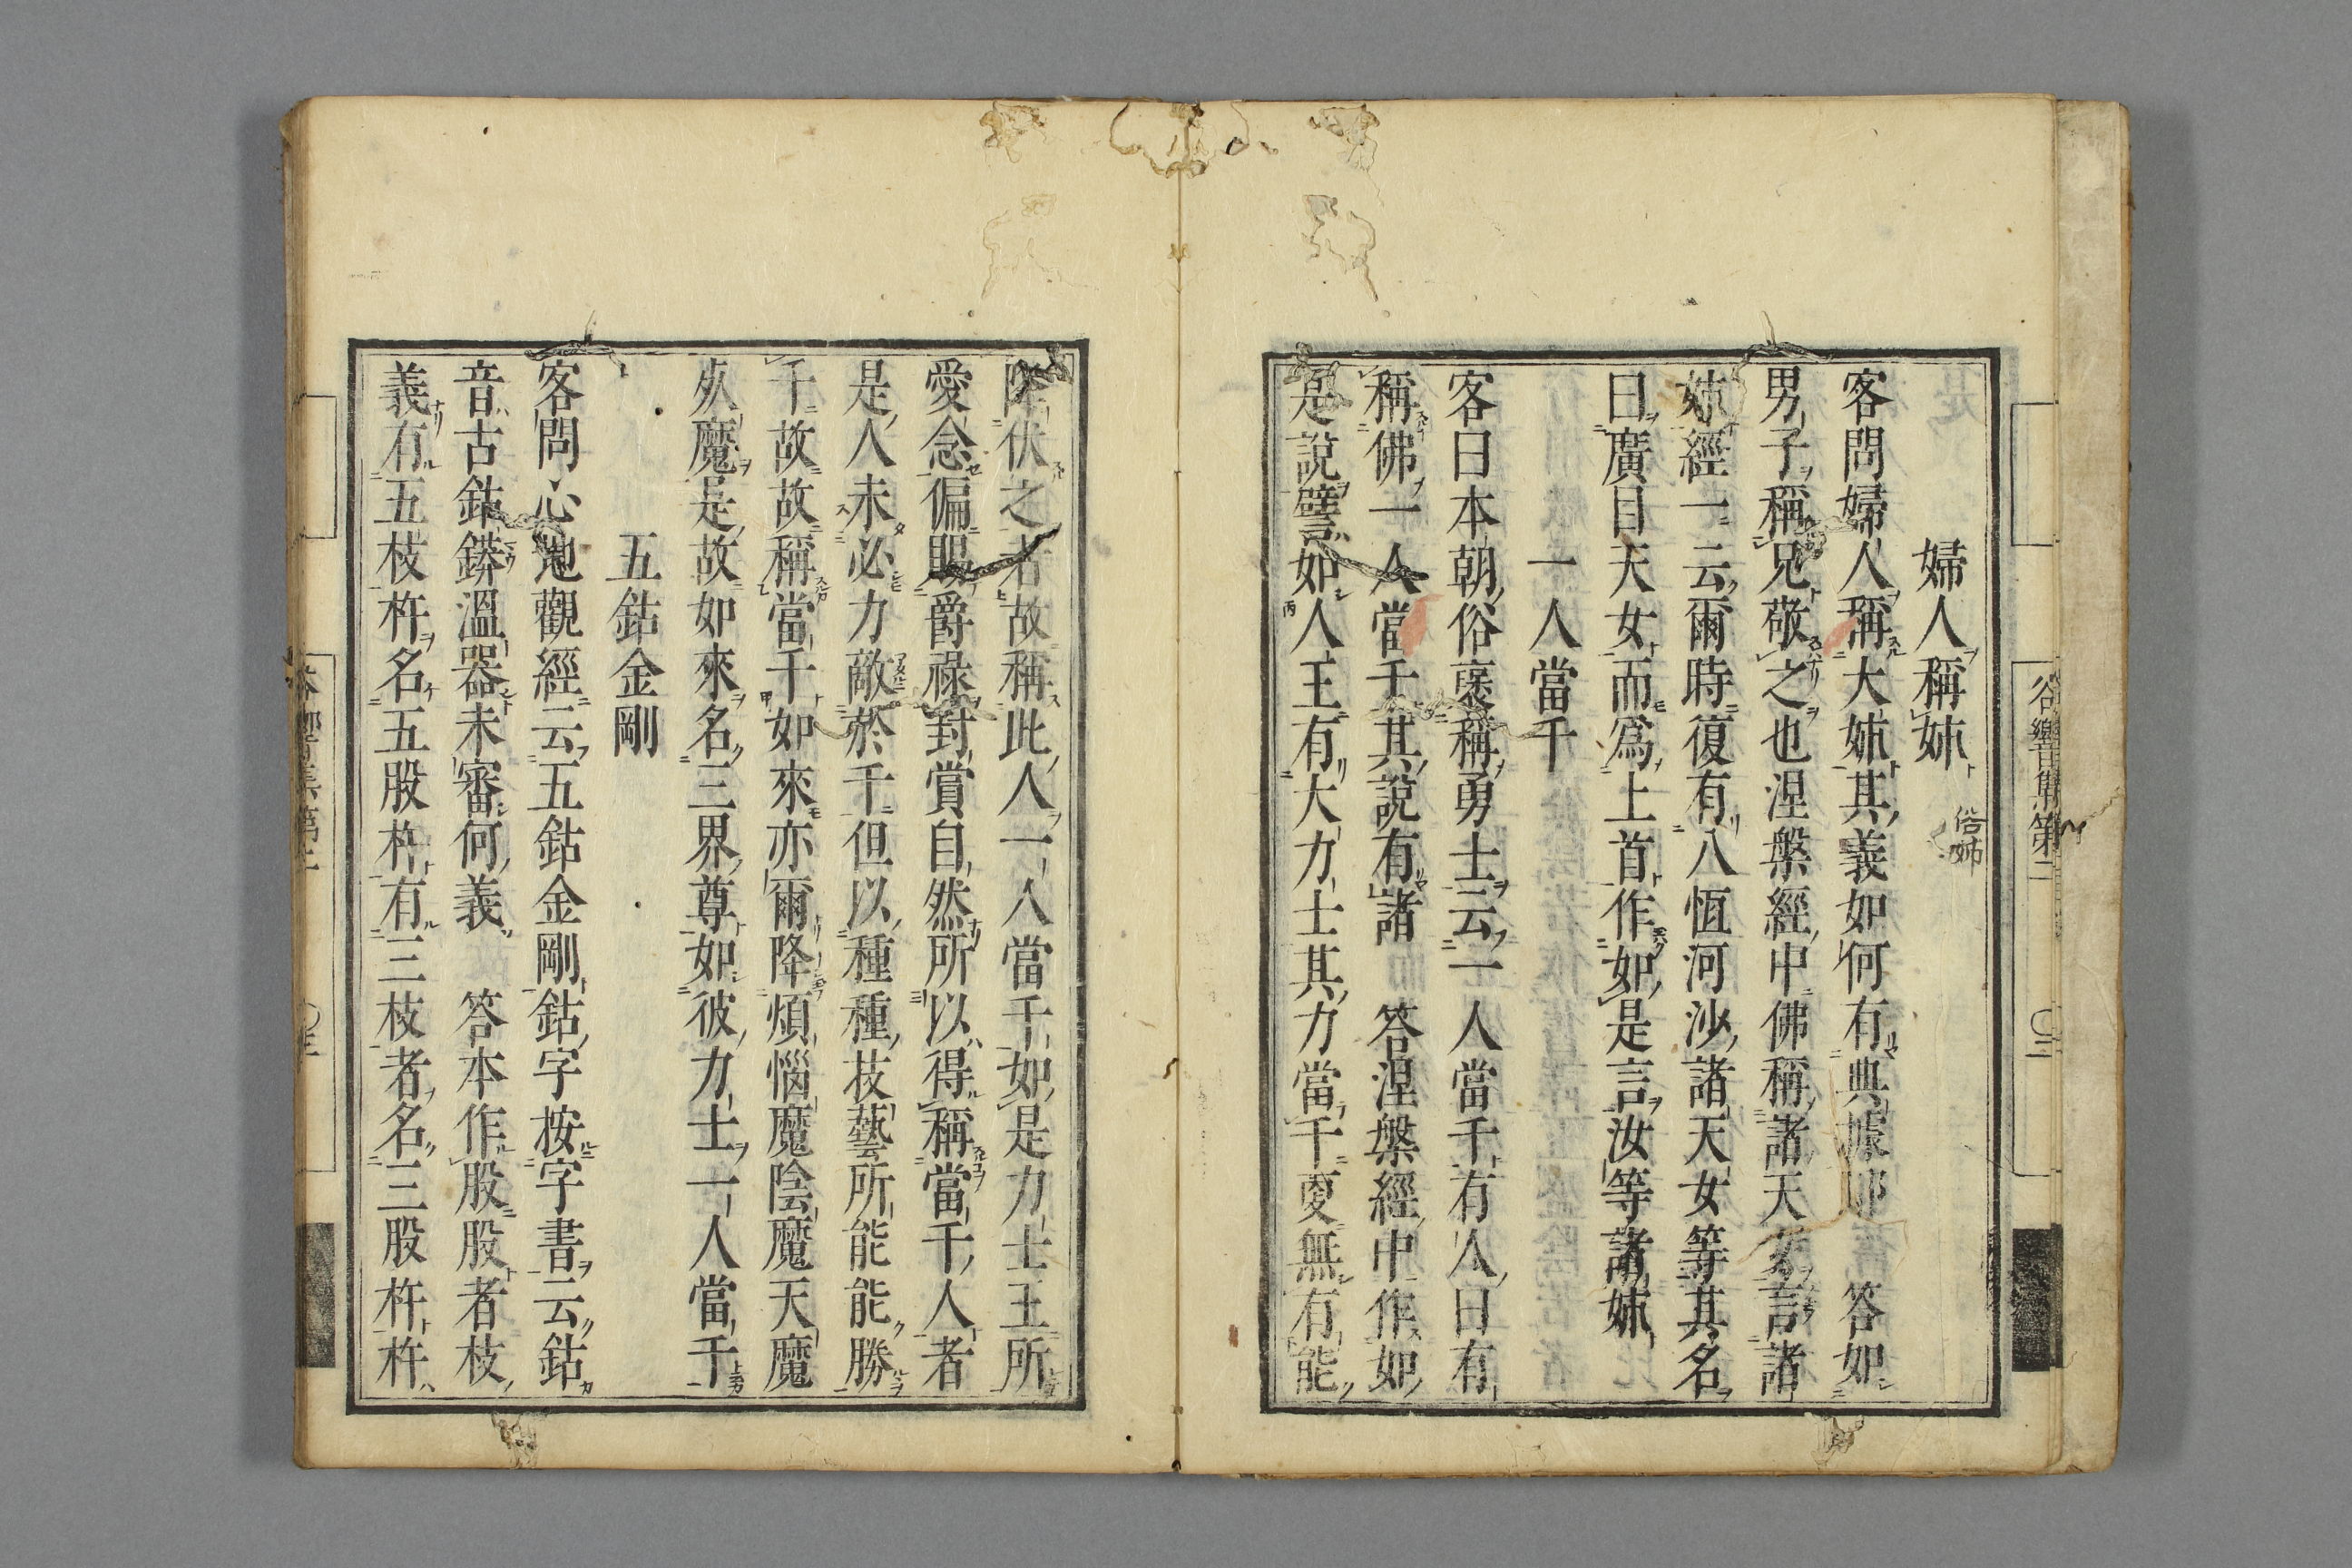 婦人稱姉 俗姉
客問婦人稱大姉其義如何有典據耶 答如
男子稱兄敬之也涅槃經中佛稱諸天女言諸
姉經一云爾時復有八恆河沙諸天女等其名
曰廣目天女而爲上首作如是言汝等諸姉
一人當千
客曰本朝俗褒稱勇士云一人當千有人曰有
稱佛一人當千其說有諸 答涅槃經中作如
是說譬如人王有大力士其力當千更無有能
降伏之者故稱此人一人當千如是力士王所
愛念偏賜爵祿封賞自然所以得稱當千人者
是人未必力敵於千但以種種技藝所能能勝
千故故稱當千如來亦爾降煩惱魔陰魔天魔
死魔是故如來名三界尊如彼力士一人當千
五鈷金剛
客問心地觀經云五鈷金剛鈷字按字書云鈷
音古鈷鏻溫器未審何義 答本作股股者枝
義有五枝杵名五股杵有三枝者名三股杵杵
谷響集第二 〇三